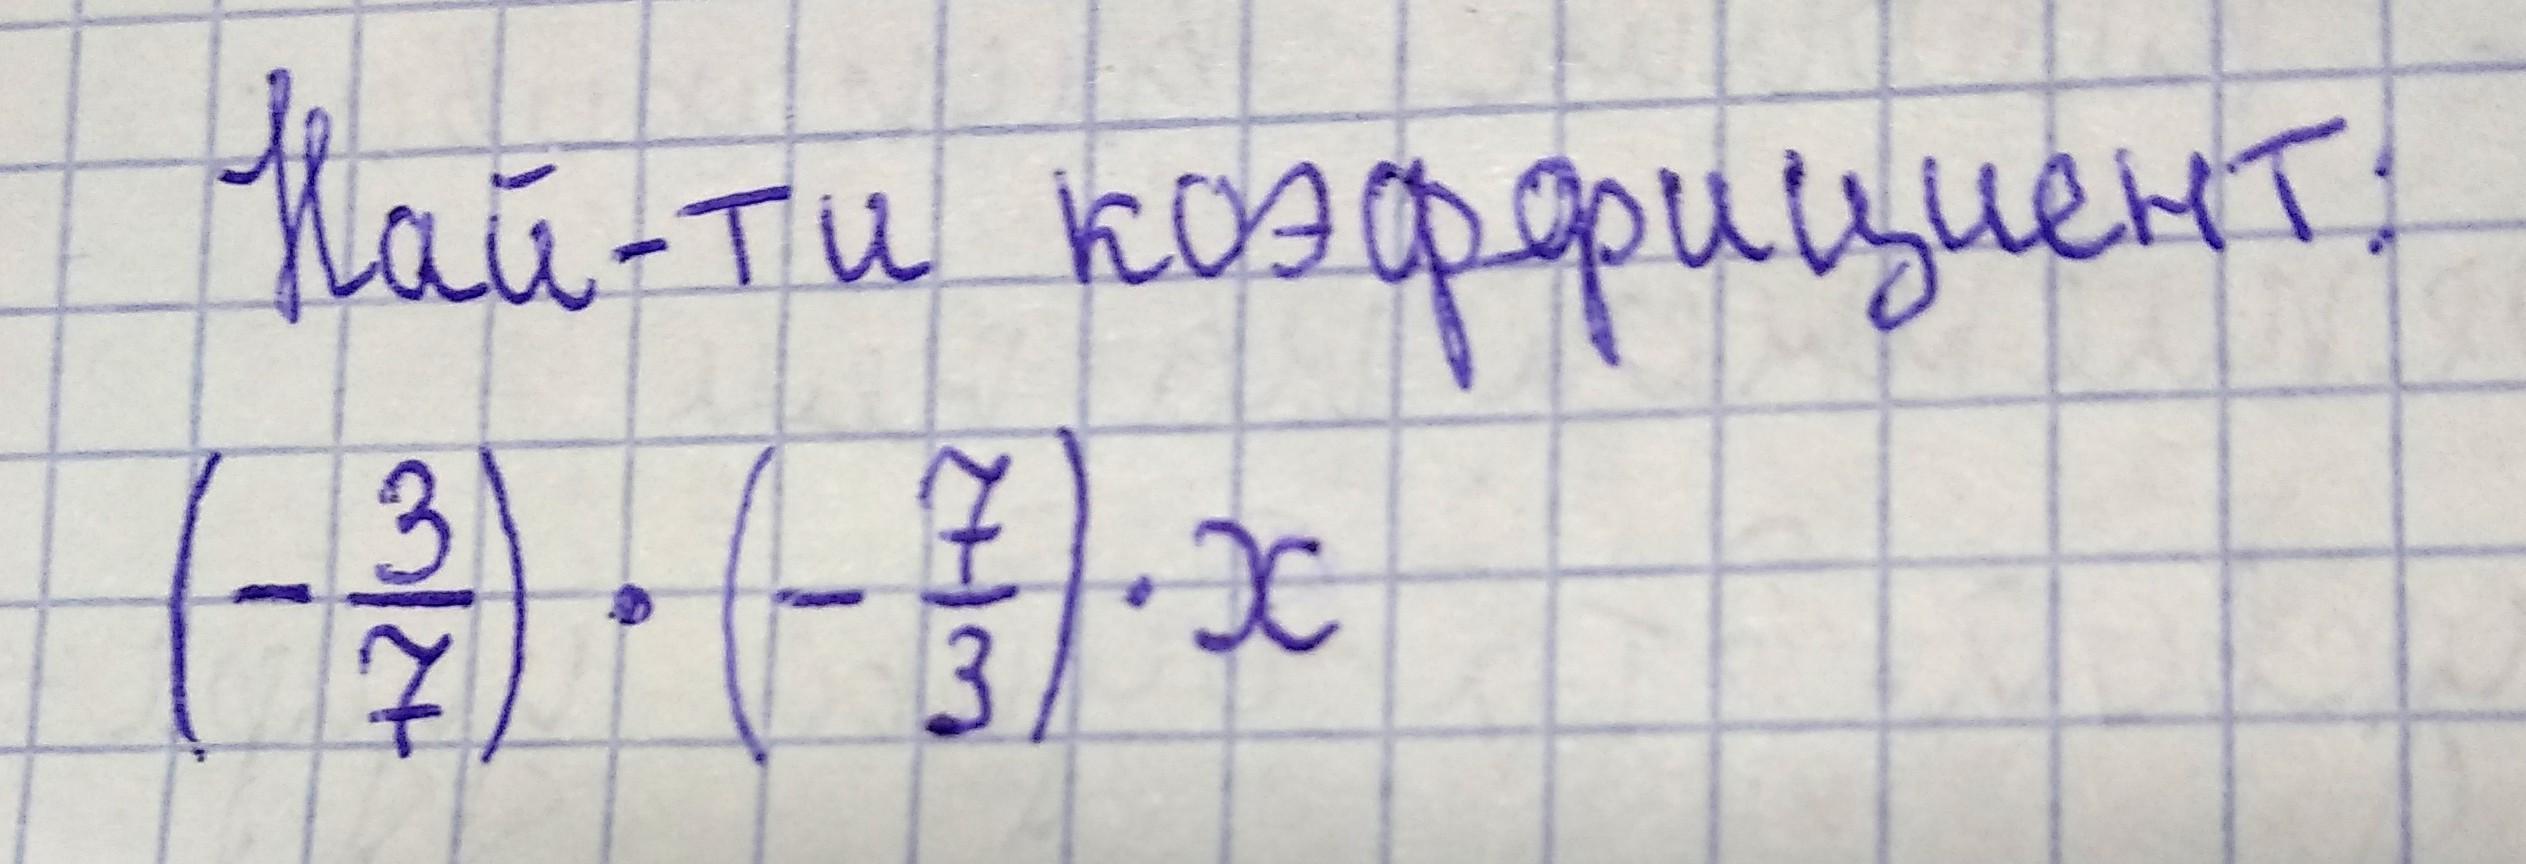 Най-ти коэффициент:
(-3/7) · (-7/3) · x